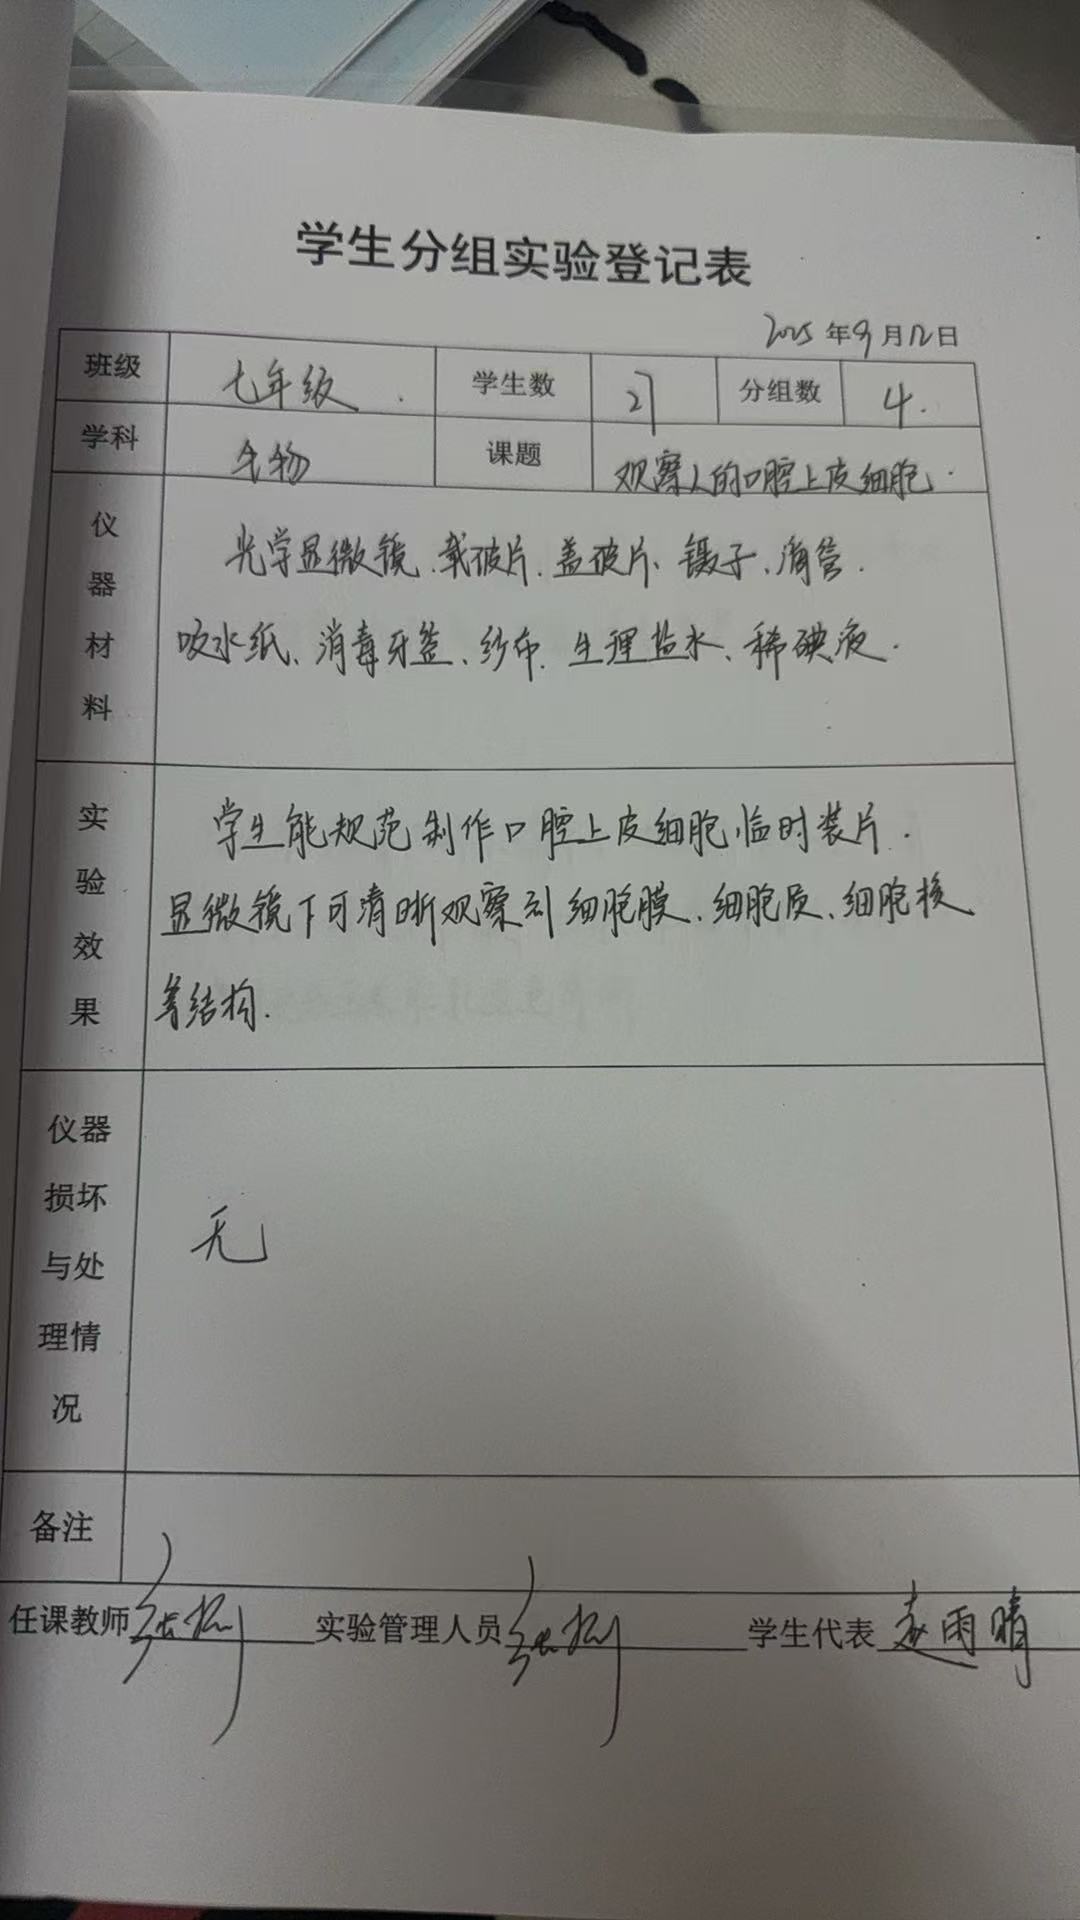 学生分组实验登记表
2025年9月12日
班级 七年级 学生数 27 分组数 4
学科 生物 课题 观察人的口腔上皮细胞
仪器材料 光学显微镜、载玻片、盖玻片、镊子、滴管、
吸水纸、消毒牙签、纱布、生理盐水、稀碘液.
实验效果 学生能规范制作口腔上皮细胞临时装片.
显微镜下可清晰观察到细胞膜、细胞质、细胞核
等结构.
仪器损坏与处理情况 无
备注
任课教师 实验管理人员 学生代表 赵雨晴